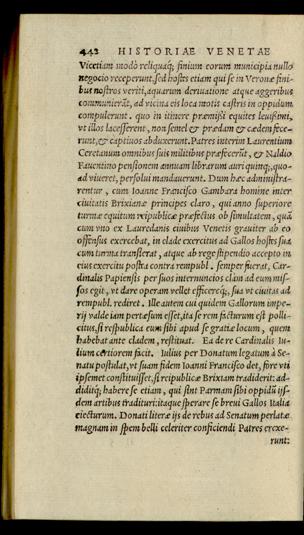 442 HISTORIAE VENETAE
Vicetiam modò reliquaq́; finium eorum municipia nullo
negocio receperunt, sed hostes etiam qui se in Veronæ fini-
bus nostros veriti, aquarum deriuatione atque aggeribus
communierāt, ad vicina eis loca motis castris in oppidum
compulerunt. quo in itinere præmißi equites leuißimi,
vt illos lacesserent, non semel & prædam & cædem fece-
runt, & captiuos abduxerunt. Patres interim Laurentium
Ceretanum omnibus suis militibus præfecerūt, & Naldio
Fauentino pensionem annuam librarum auri quinq;, quo-
ad viueret, persolui mandauerunt. Dum hæc administra-
rentur, cum Ioanne Francisco Gambara homine inter
ciuitatis Brixianæ principes claro, qui anno superiore
turmæ equitum reipublicæ præfectus ob simultatem, quā
cum vno ex Lauredanis ciuibus Venetis grauiter ab eo
offensus exercebat, in clade exercitus ad Gallos hostes sua
cum turma transierat, atque ab rege stipendio accepto in
eius exercitu postea contra rempubl. semper fuerat, Car-
dinalis Papiensis per suos internuncios clam ad eum mis-
sos egit, vt dare operam vellet efficereq́;, sua vt ciuitas ad
rempubl. rediret. Ille autem cui quidem Gallorum impe-
rij valde iam pertæsum esset, ita se rem facturum est polli-
citus, si respublica eum sibi apud se gratiæ locum, quem
habebat ante cladem, restituat. Ea de re Cardinalis Iu-
lium certiorem facit. Iulius per Donatum legatum à Se-
natu postulat, vt suam fidem Ioanni Francisco det, fore vti
ipsemet constituisset, si reipublicæ Brixiam tradiderit: ad-
diditq́; habere se etiam, qui sint Parmam sibi oppidū ijs-
dem artibus tradituri: itaque sperare se breui Gallos Italia
eiecturum. Donati literæ ijs de rebus ad Senatum perlatæ
magnam in spem belli celeriter conficiendi Patres erexe-
runt: